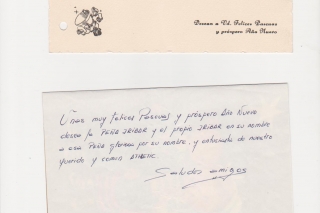 Desean a Vd. Felices Pascuas
y próspero Año Nuevo
Unas muy felices Pascuas y próspero Año Nuevo
desea la PEÑA IRIBAR y el propio IRIBAR en su nombre
a esa PEÑA gloriosa por su nombre, y entusiasta de nuestro
querido y común
Saludos amigos